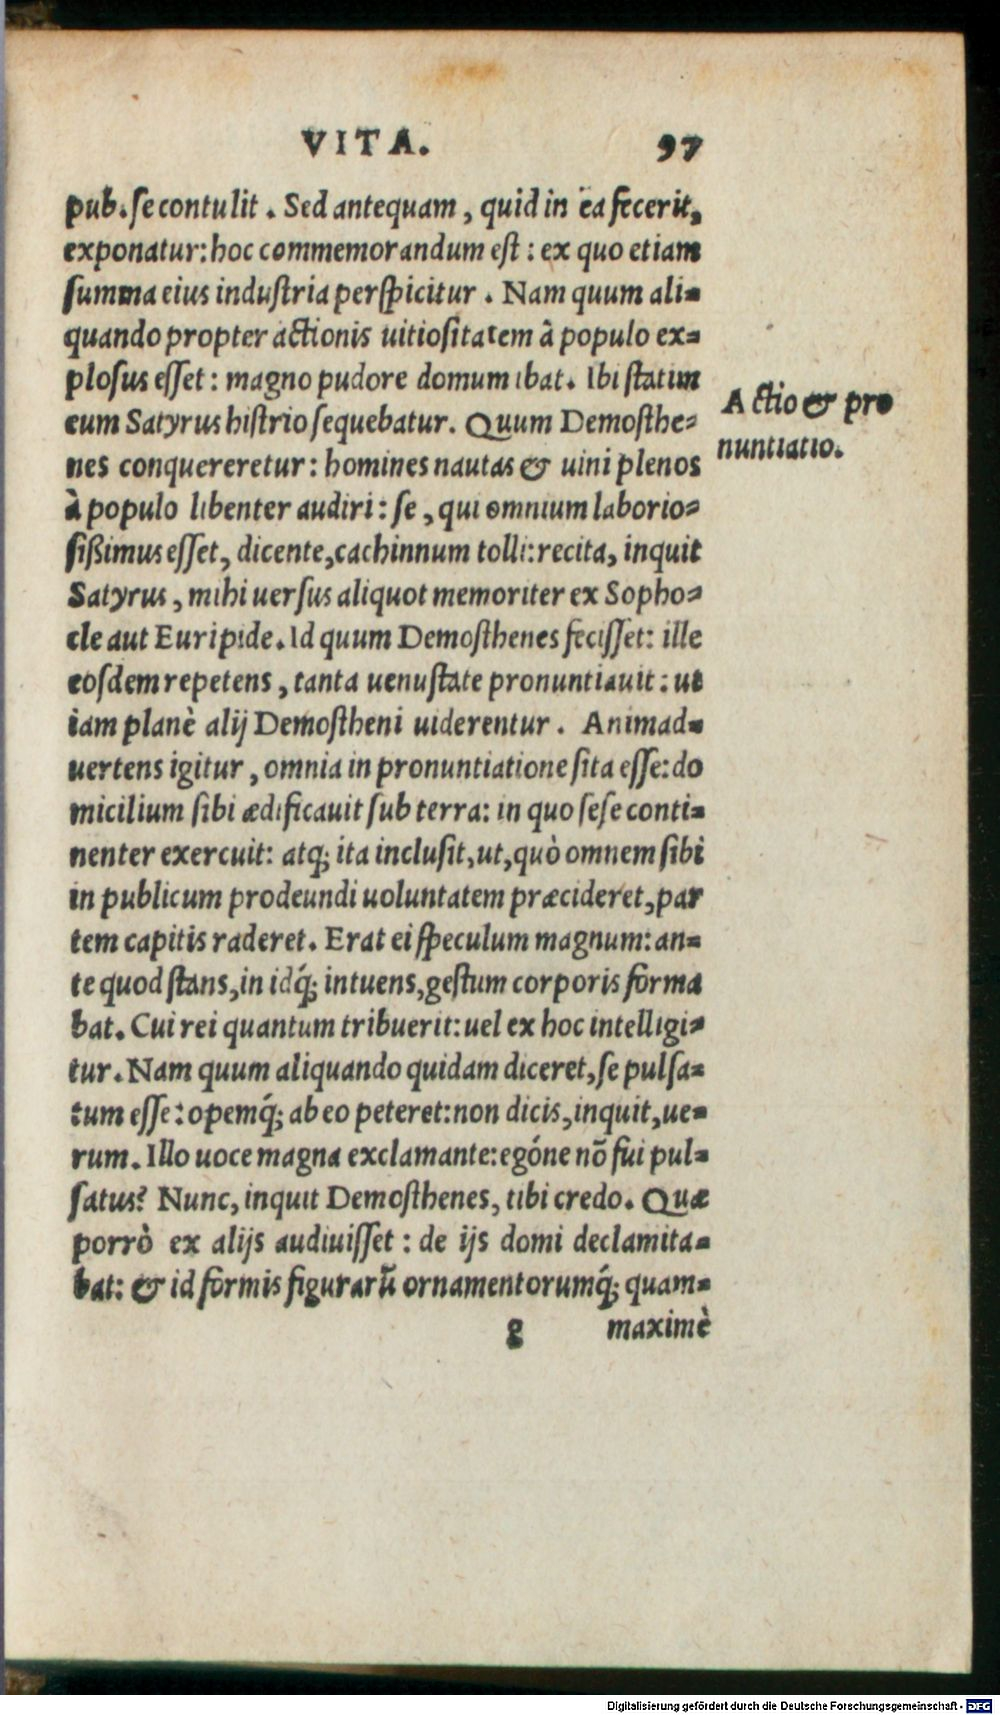 VITA. 97
pub. se contulit. Sed antequam, quid in ea fecerit,
exponatur: hoc commemorandum est: ex quo etiam
summa eius industria perspicitur. Nam quum ali-
quando propter actionis uitiositatem à populo ex-
plosus esset: magno pudore domum ibat. Ibi statim
eum Satyrus histrio sequebatur. Quum Demosthe-
nes conquereretur: homines nautas & uini plenos
à populo libenter audiri: se, qui omnium laborio-
sißimus esset, dicente, cachinnum tolli: recita, inquit
Satyrus, mihi uersus aliquot memoriter ex Sopho-
cle aut Euripide. Id quum Demosthenes fecisset: ille
eosdem repetens, tanta uenustate pronuntiauit: ut
iam planè alij Demostheni uiderentur. Animad-
uertens igitur, omnia in pronuntiatione sita esse: do
micilium sibi ædificauit sub terra: in quo sese conti-
nenter exercuit: atq; ita inclusit, ut, quò omnem sibi
in publicum prodeundi uoluntatem præcideret, par
tem capitis raderet. Erat ei speculum magnum: an-
te quod stans, in idq́; intuens, gestum corporis forma
bat. Cui rei quantum tribuerit: uel ex hoc intelligi-
tur. Nam quum aliquando quidam diceret, se pulsa-
tum esse: opemq́; ab eo peteret: non dicis, inquit, ue-
rum. Illo uoce magna exclamante: egóne nõ fui pul-
satus? Nunc, inquit Demosthenes, tibi credo. Quæ
porrò ex alijs audiuisset: de ijs domi declamita-
bat: & id formis figurarũ ornamentorumq́; quam-
g maximè
Actio & pro
nuntiatio.
Digitalisierung gefördert durch die Deutsche Forschungsgemeinschaft - DFG